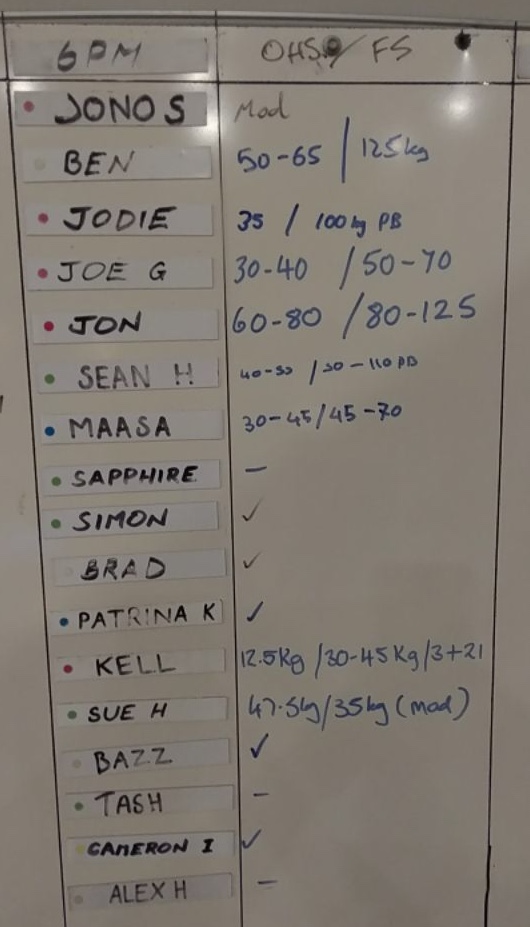 6PM OHS / FS
JONO S Mod
BEN 50-65 / 125kg
JODIE 35 / 100kg PB
JOE G 30-40 / 50-70
JON 60-80 / 80-125
SEAN H 40-50 / 50-110 PB
MAASA 30-45/45-70
SAPPHIRE –
SIMON ✓
BRAD ✓
PATRINA K ✓
KELL 12.5Kg /30-45Kg/3+21
SUE H 47.5kg/35kg (mod)
BAZZ ✓
TASH –
CAMERON I ✓
ALEX H –